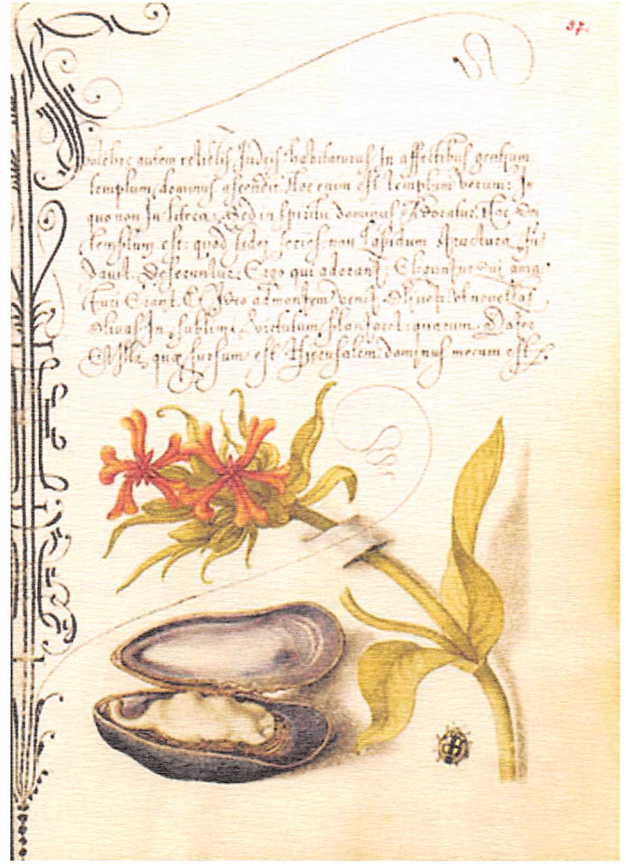 37.
autem relictis Judeis habitaturus In affectibus gentium
templum, dominus ascendit. Hoc enim est templum verum: In
quo non In litera, Sed in spiritu dominus Adoratur. Hoc Dei
templum est: quod fidei series, non lapidum structura fu
dauit. Deseruntur Ergo qui adorant; Eliguntur qui ama
turi Erant. Et Ideo ad montem venit Oliueti: Vt nouellas
Oliuas In sublimi, plantaret: quarum Mater
Est Illa, quæ sursum est Hierusalem. dominus mecum est.